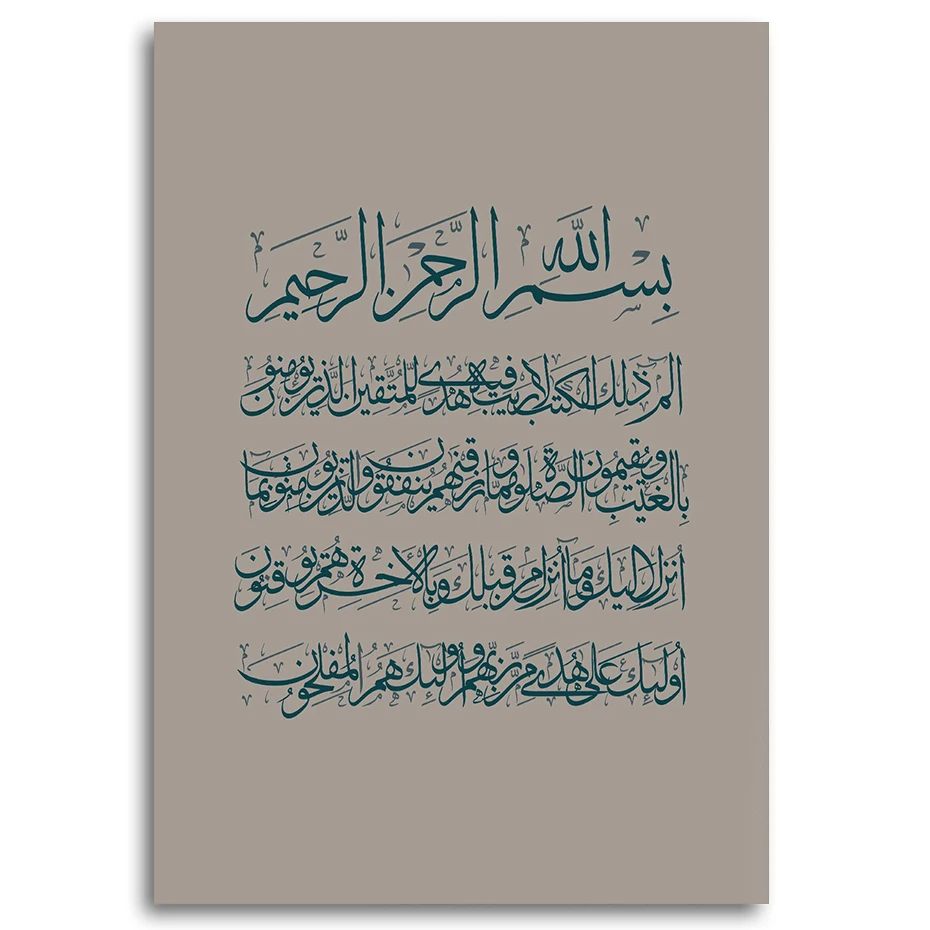 بِسْمِ اللَّهِ الرَّحْمَنِ الرَّحِيمِ
الم ذَلِكَ الكِتَبُ لَا رَيْبَ فِيهِ هُدًى لِلْمُتَّقِينَ الَّذِينَ يُؤْمِنُونَ
بِالغَيْبِ وَيُقِيمُونَ الصَّلَوةَ وَمِمَّا رَزَقْنَهُمْ يُنفِقُونَ وَالَّذِينَ يُؤْمِنُونَ بِمَا
أُنْزِلَ إِلَيْكَ وَمَا أُنْزِلَ مِنْ قَبْلِكَ وَبِالآخِرَةِ هُمْ يُوقِنُونَ
أُولَئِكَ عَلَى هُدًى مِنْ رَبِّهِمْ وَأُولَئِكَ هُمُ المُفْلِحُونَ